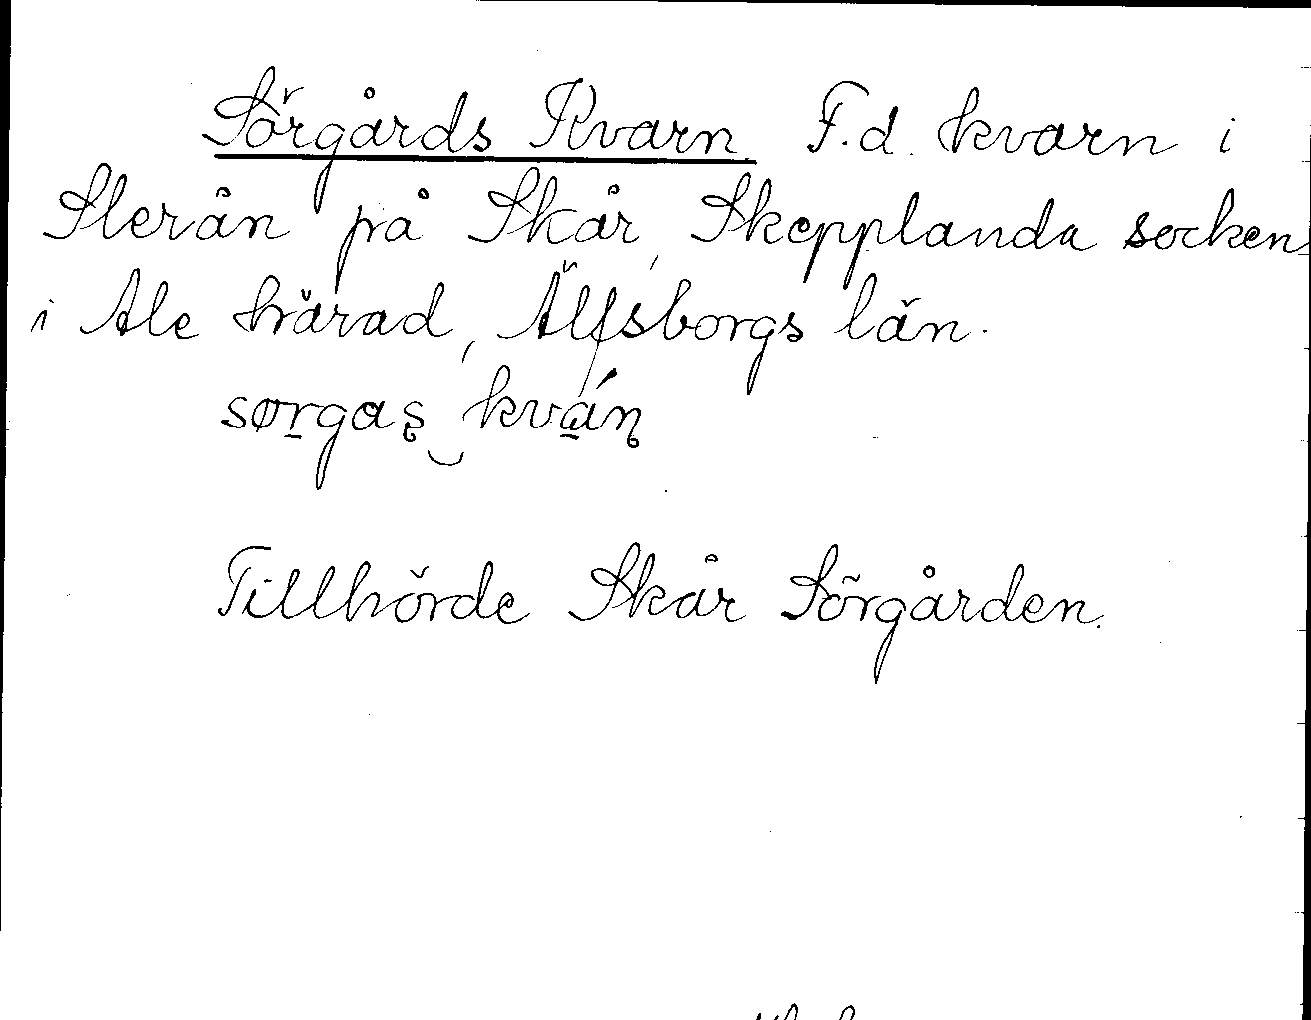 Sörgårds Kvarn F.d. kvarn i
Slerån på Skår, Skepplanda socken
i Ale härad, Älfsborgs län.
sørgaʂ‿kván̨
Tillhörde Skår Sörgården.